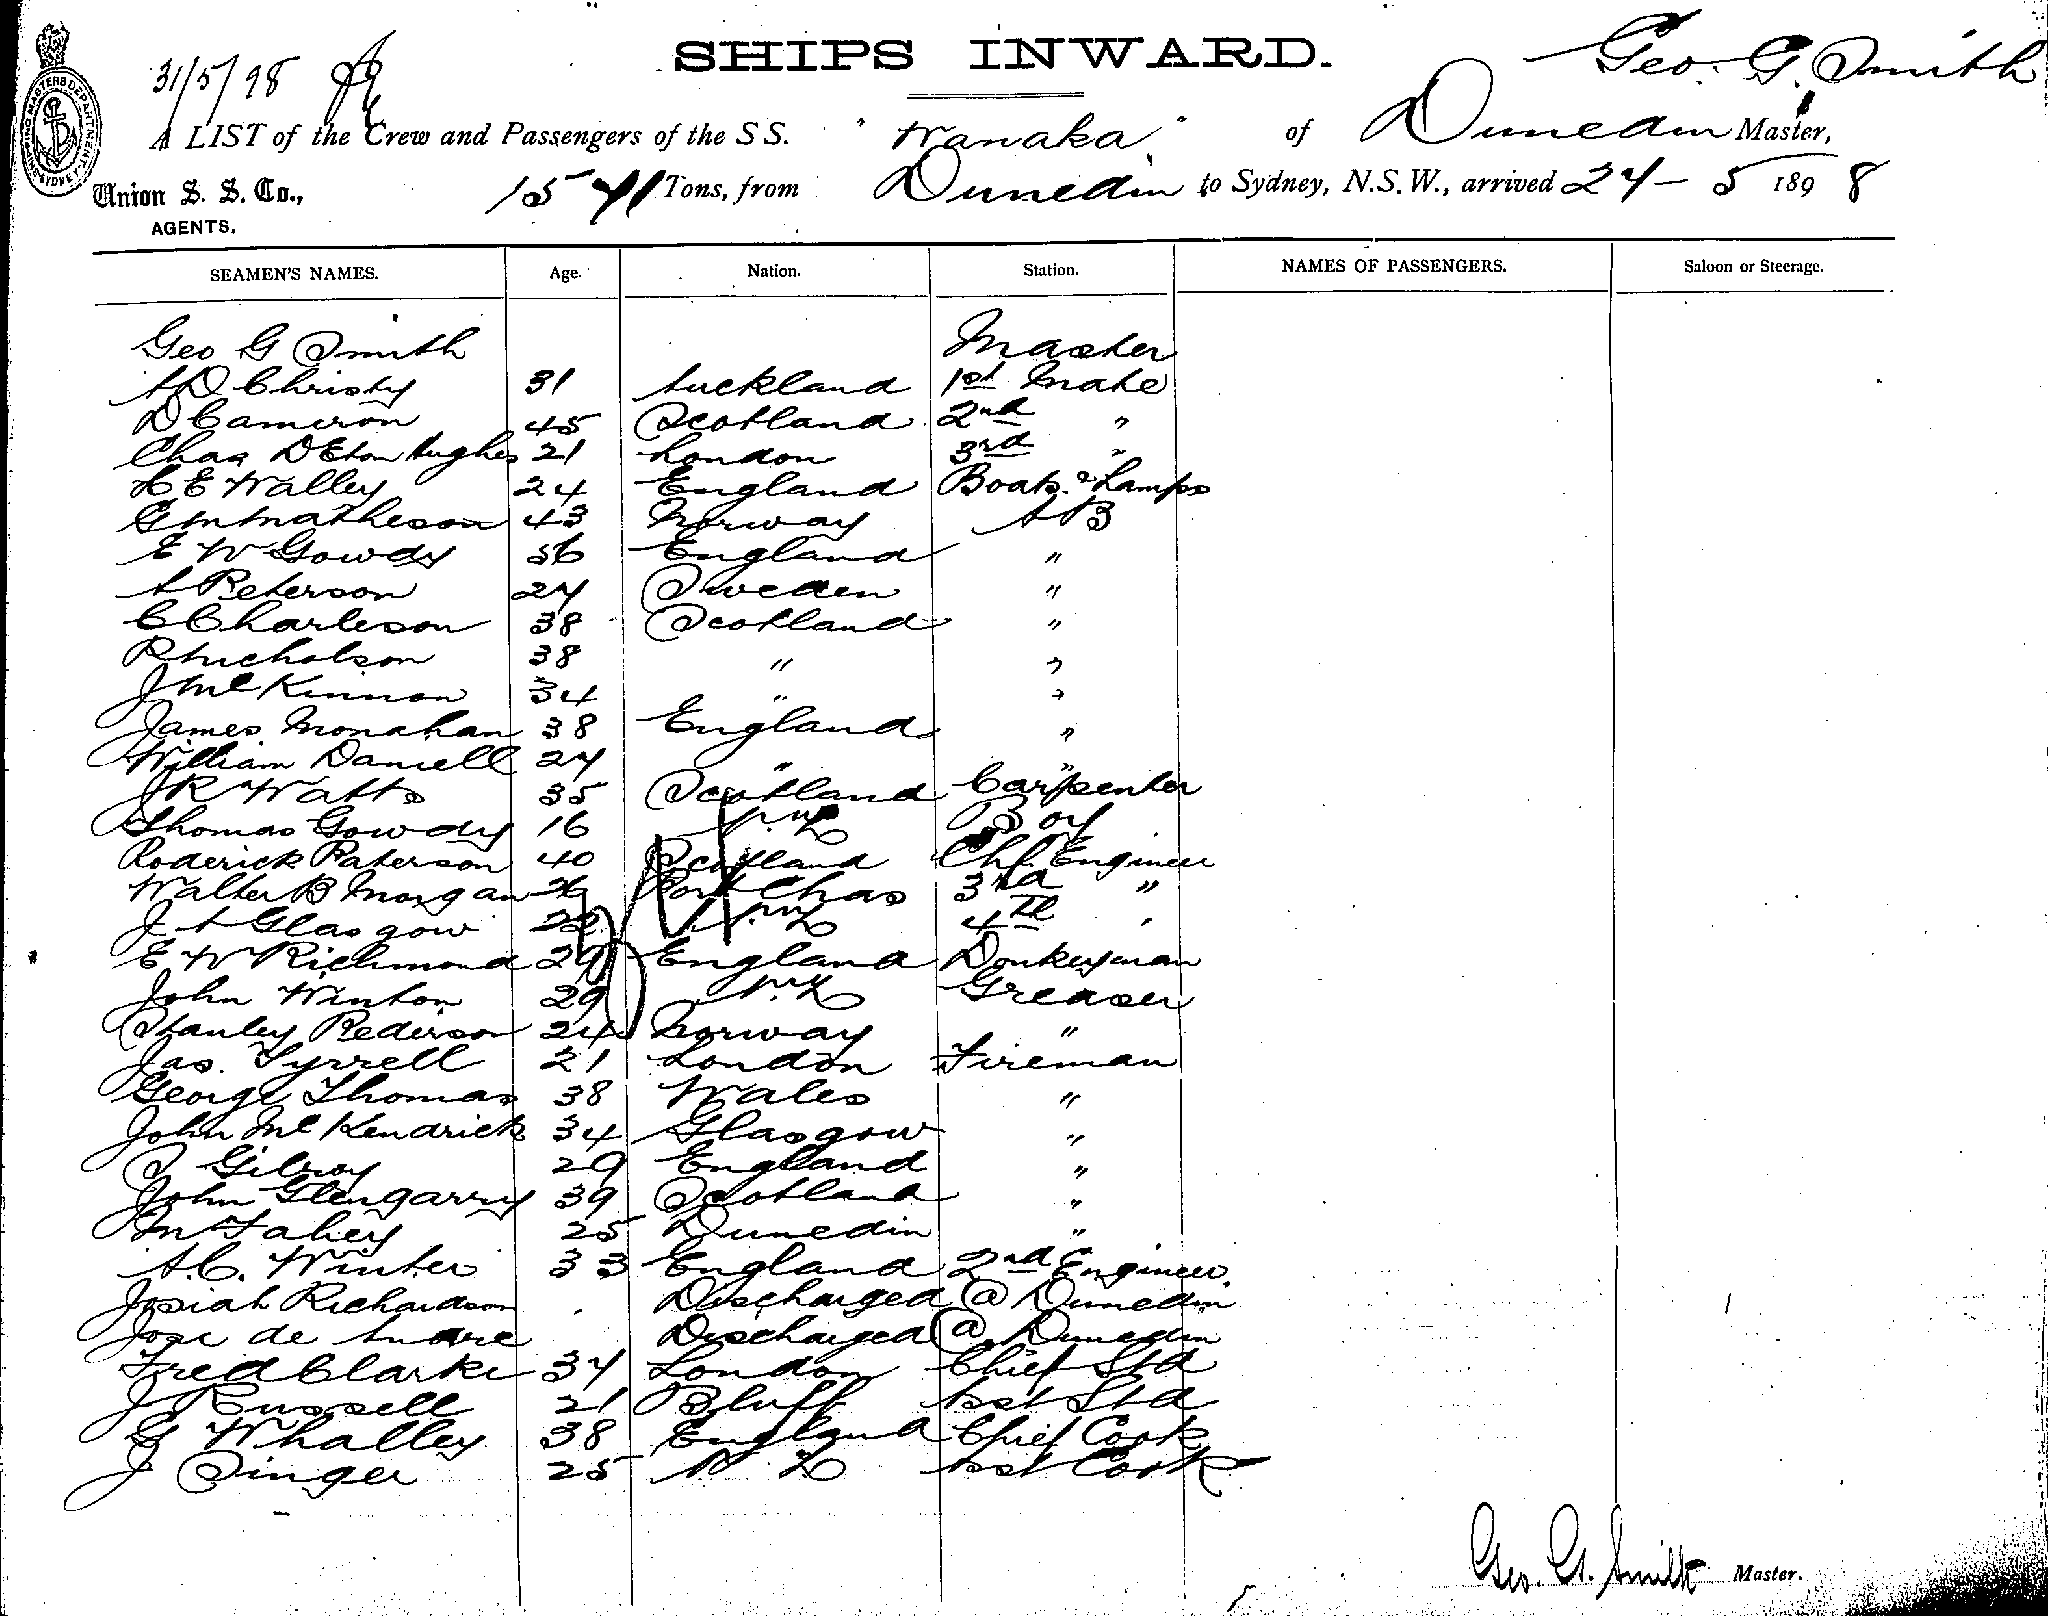 SHIPS INWARD.
Geo. G. Smith
31/5/98
A LIST of the Crew and Passengers of the S S. "Wanaka" of Dunedin Master,
Union S. S. Co., 1541 Tons, from Dunedin to Sydney, N.S.W., arrived 24 - 5 1898
AGENTS.
SEAMEN'S NAMES. Age. Nation. Station. NAMES OF PASSENGERS. Saloon or Steerage.
Geo G Smith Master
A D Christy 31 Auckland 1st Mate
D Cameron 45 Scotland 2nd "
Chas D Eton Hughes 21 London 3rd "
H E Walley 24 England Boats & Lamps
G M Matheson 43 Norway A B
E W Gowdy 56 England "
A Peterson 24 Sweden "
C Charleson 38 Scotland "
R Nicholson 38 " "
J McKinnon 34 " "
James Monahan 38 England "
William Daniell 24 " "
J R Watts 35 Scotland Carpenter
Thomas Gowdy 16 N.Z Boy
Roderick Paterson 40 Scotland Chf. Engineer
Walter B Morgan 26 Port Chas 3rd "
J A Glasgow 22 N.Z 4th "
E W Richmond 29 England Donkeyman
John Winton 29 N.Z Greaser
Stanley Pederson 24 Norway "
Jas. Tyrrell 21 London Fireman
George Thomas 38 Wales "
John McKendrick 34 Glasgow "
J Gilroy 29 England "
John Glengarry 39 Scotland "
M Fahey 25 Dunedin "
A.C. Winter 33 England 2nd Engineer.
Josiah Richardson Discharged @ Dunedin
Jose de Andre Discharged @ Dunedin
Fred Clarke 34 London Chief Std
J Russell 21 Bluff Asst Std
G Whalley 38 England Chief Cook
J Singer 25 N Z Asst Cook
Geo. G. Smith Master.